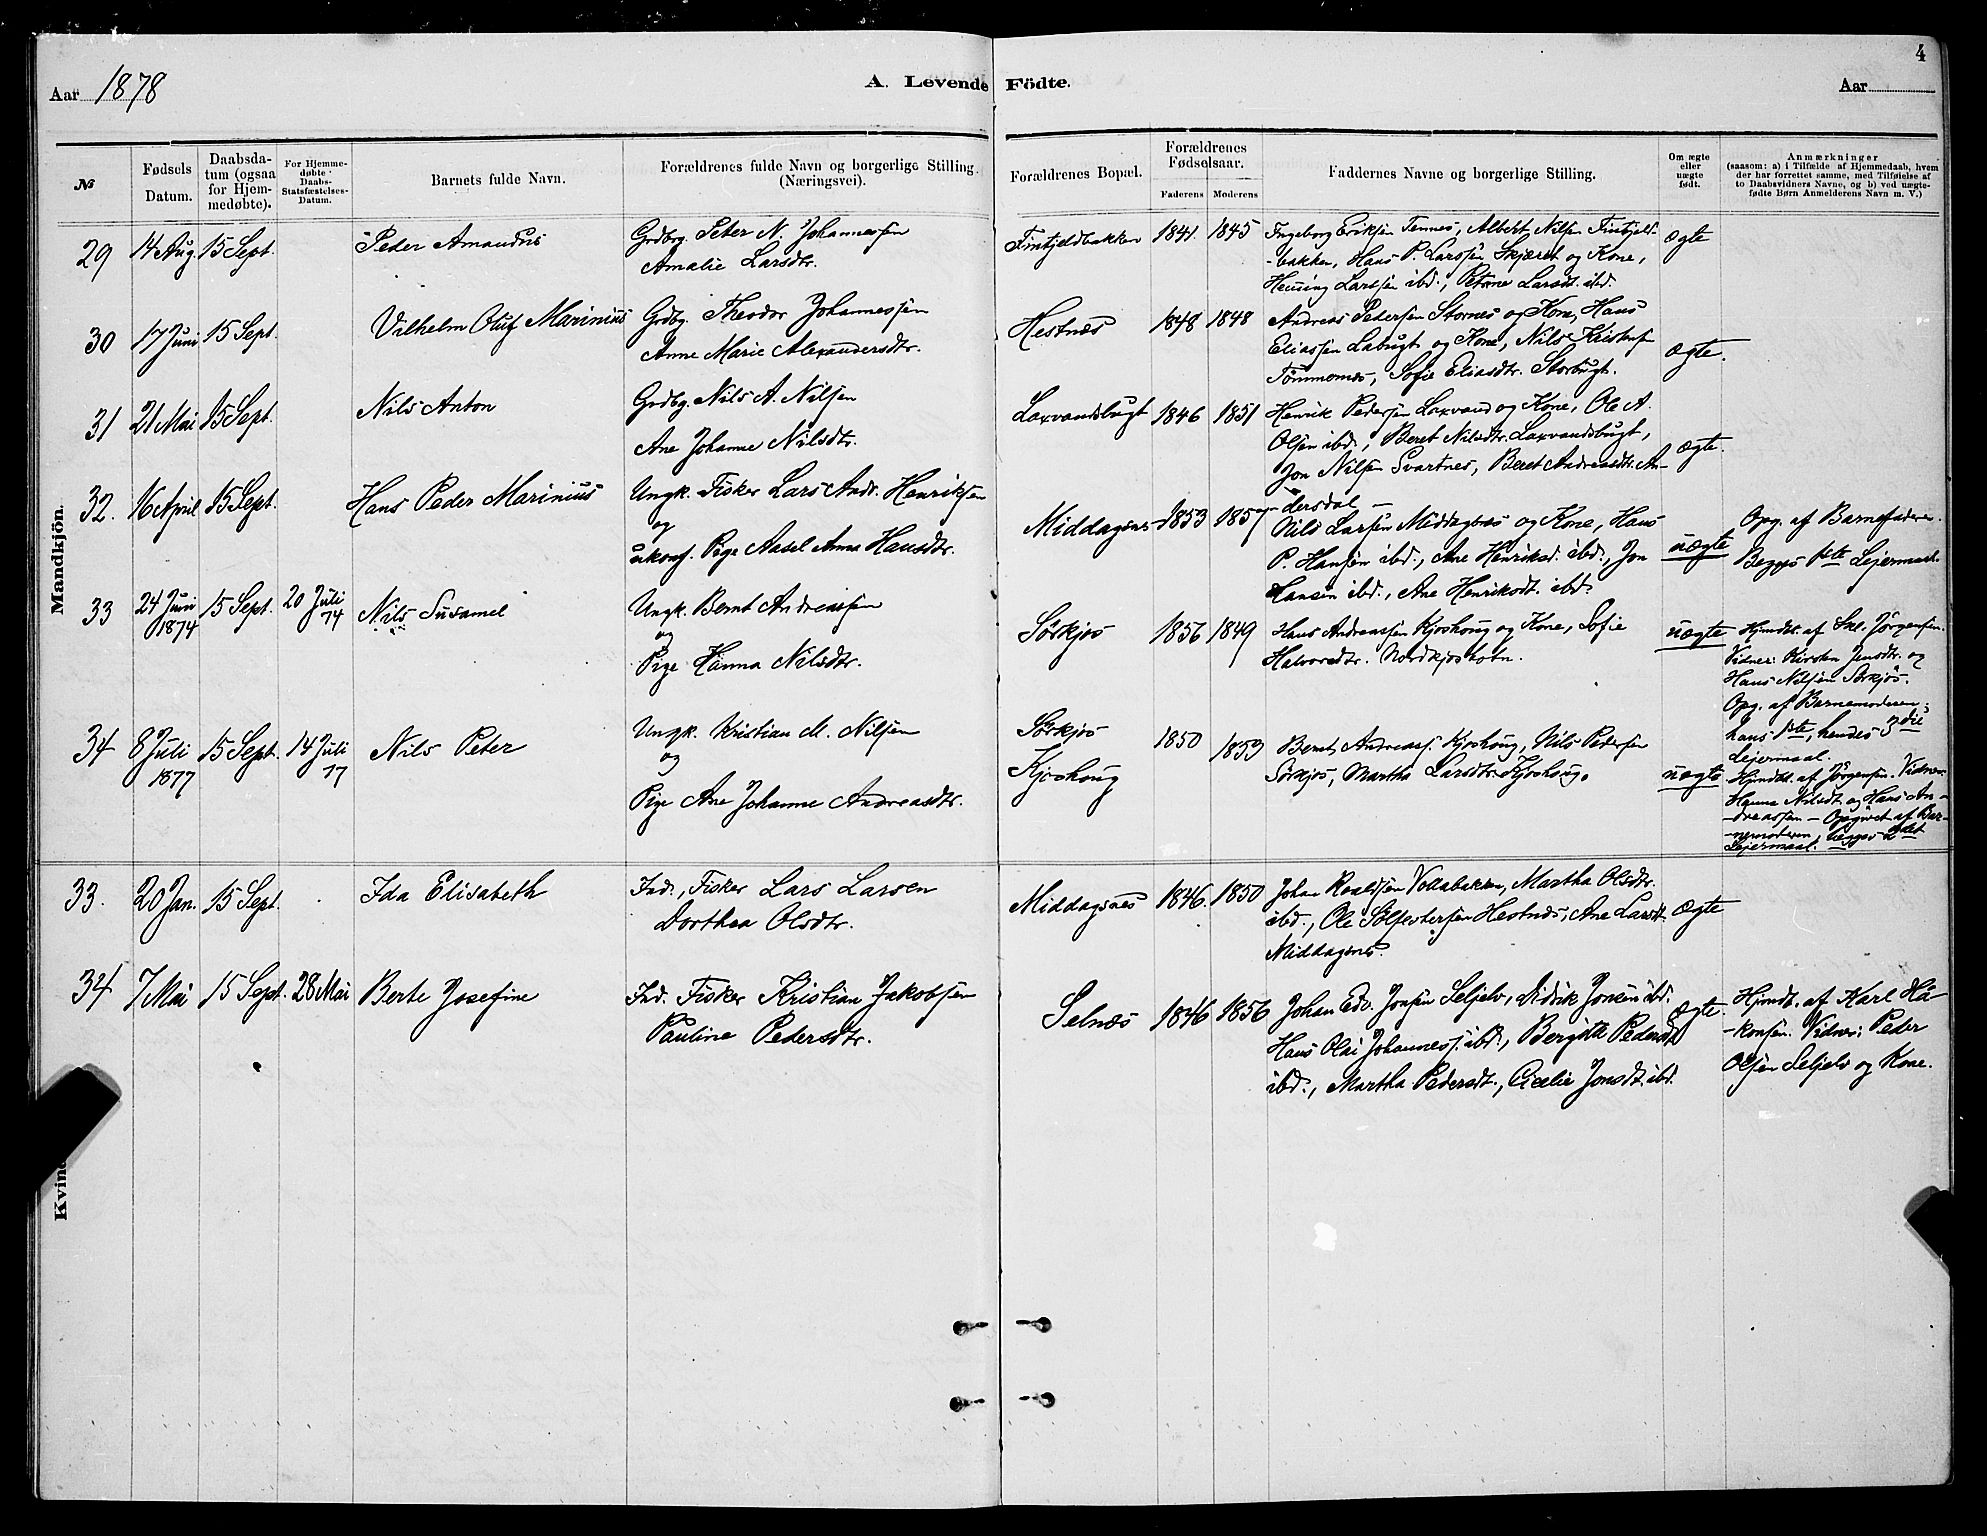 4
Aar 1878
A. Levende Födte.
Aar
№
Fødsels Datum.
Daabsdatum (ogsaa for Hjemmedøbte).
For Hjemmedøbte Daabs-Statsfæstelses-Datum.
Barnets fulde Navn.
Forældrenes fulde Navn og borgerlige Stilling.
(Næringsvei).
Forældrenes Bopæl.
Forældrenes Fødselsaar.
Faderens Moderens
Faddernes Navne og borgerlige Stilling.
Om ægte eller uægte født.
Anmærkninger
(saasom: a) i Tilfælde af Hjemmedaab, hvem
der har forrettet samme, med Tilføielse af
to Daabsvidners Navne, og b) ved uægte-
fødte Børn Anmelderens Navn m. V.)
Mandkjön.
29 14 Aug. 15 Sept. Peder Amandus Grdbrg. Peter N. Johannessen Fintjeldbakken 1841. 1845 Ingeborg Eriksen Tennes, Albert Nilsen Fintjeld-
Amalie Larsdtr. -bakken, Hans P. Larssen Skjæret og Kone, ægte
Henning Larssen ibd., Petrine Larsdt. ibd.
30 17 Juni 15 Sept. Vilhelm Oluf Marinius Grdbg. Theodor Johannessen Hestnæs 1848 1848 Andreas Pedersen Stornes og Kone, Hans
Anne Marie Alexandersdtr. Eliassen Labugt og Kone, Nils Kristuf ægte.
Tömmernes, Sofie Eliasdtr. Storbugt.
31 21 Mai 15 Sept. Nils Anton Grdbg. Nils A. Nilsen Laxvandsbugt 1846 1851 Henrik Pedersen Laxvand og Kone, Ole A.
Ane Johanne Nilsdtr. Olsen ibd., Beret Nilsdtr. Laxvandsbugt, ægte.
Jon Nilsen Svartnes, Beret Andreasdtr. An-
dersdal —
32. 16 April 15 Sept. Hans Peder Marinius Ungk. Fisker Lars Andr. Henriksen Middagsnes 1853 1857 Nils Larsen Middagsnes og Kone, Hans Opg. af Barnefaderen.
og P. Hansen ibd., Ane Henriksd. ibd., Jon uægte Begges 1ste Lejermaal.
ukonf. Pige Aasel Anna Hansdtr. Hansen ibd., Ane Henriksdt. ibd.
33 24 Juni 1874 15 Sept. 20 Juli 74 Nils Susamel Ungk. Bernt Andreassen Sørkjos 1856 1849 Hans Andreassen Kjoshoug og Kone, Sofie uægte Hjmdbt. af Skl. Jörgensen.
og Halvorsdtr. Nordkjosbotn. Vidner: Kirsten Jensdtr. og
Pige Hanna Nilsdtr. Hans Nilsen Sørkjos.
Opg. af Barnemoderen;
hans 1ste, hendes 3die
Lejermaal.
34 8 Juli 1877 15 Sept. 14 Juli 77 Nils Peter Ungk. Kristian M. Nilsen Sørkjos 1850 1853 Bernt Andreass. Kjoshoug, Nils Pedersen
og Kjoshoug Sørkjos, Martha Larsdtr. Kjoshoug. uægte Hjmdbt. af Jörgensen. Vidner:
Pige Ane Johanne Andreasdtr. Hanna Nilsdt. og Hans An-
-dreassen — Opgivet af Bar-
-nemoderen, begges 2det
Lejermaal.
33. 20 Jan. 15 Sept. Ida Elisabeth Ind., Fisker Lars Larsen Middagsnes 1846. 1850 Johan Roaldsen Vollabakken, Martha Olsdtr.
Dorthea Olsdtr. ibd., Ole Solfestersen Hestnæs, Ane Larsdt. ægte
Middagsnes.
34 7 Mai 15 Sept. 28 Mai Berte Josefine Ind. Fisker Kristian Jakobsen Selnæs 1846 1856 Johan Edv. Jonsen Seljelv, Didrik Jonsen ibd. ægte. Hjmdbt. af Karl Ha-
Pauline Pedersdtr. Hans Olai Johanness. ibd., Bergitte Pedersdt. -konsen. Vidner: Peder
ibd., Martha Pedersdt., Cicelie Jonsdt. ibd. Olsen Seljelv og Kone.
Kvin